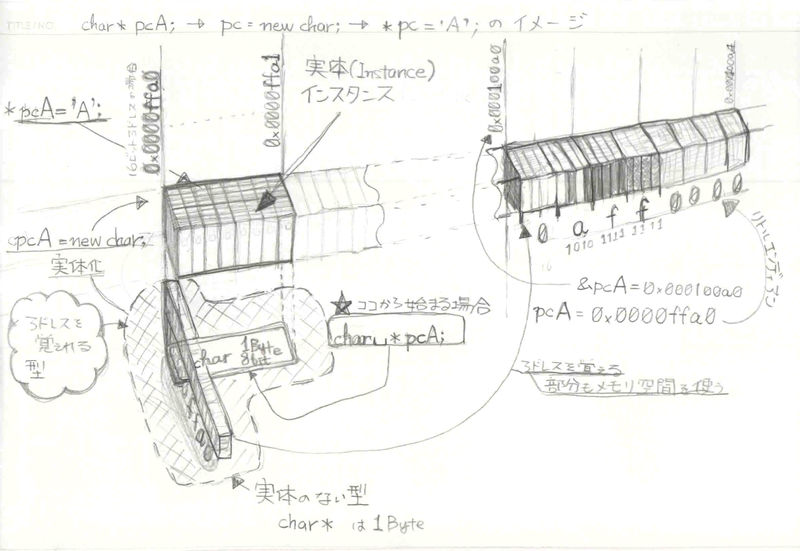 TITLE/NO.
char* pcA; → pc = new char; → *pc = 'A'; のイメージ
実体(Instance)
インスタンス
*pcA = 'A';
0x0000ffa0
0x0000ffa1
0x000100a0
0x000100a4
pcA = new char;
実体化
アドレスを
覚えれる
型
★ココから始まる場合
char␣*pcA;
char 1Byte
8bit
0 a f f 0 0 0 0
1010 1111 1111
16
&pcA = 0x000100a0
pcA = 0x0000ffa0
リトルエンディアン
アドレスを覚える
部分もメモリ空間を使う
実体のない型
char* は 1Byte